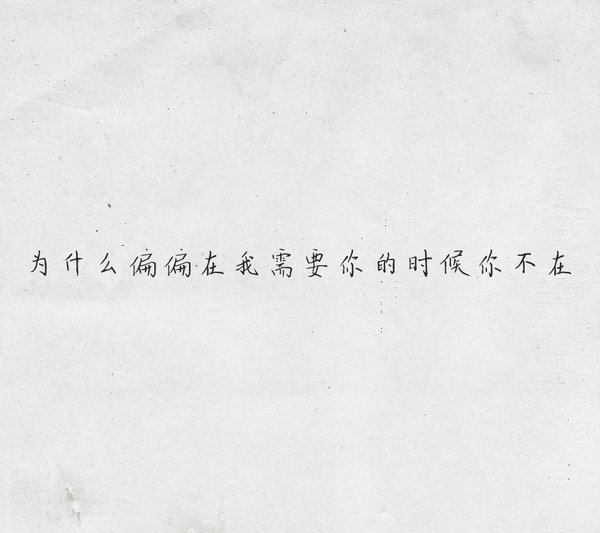 为什么偏偏在我需要你的时候你不在